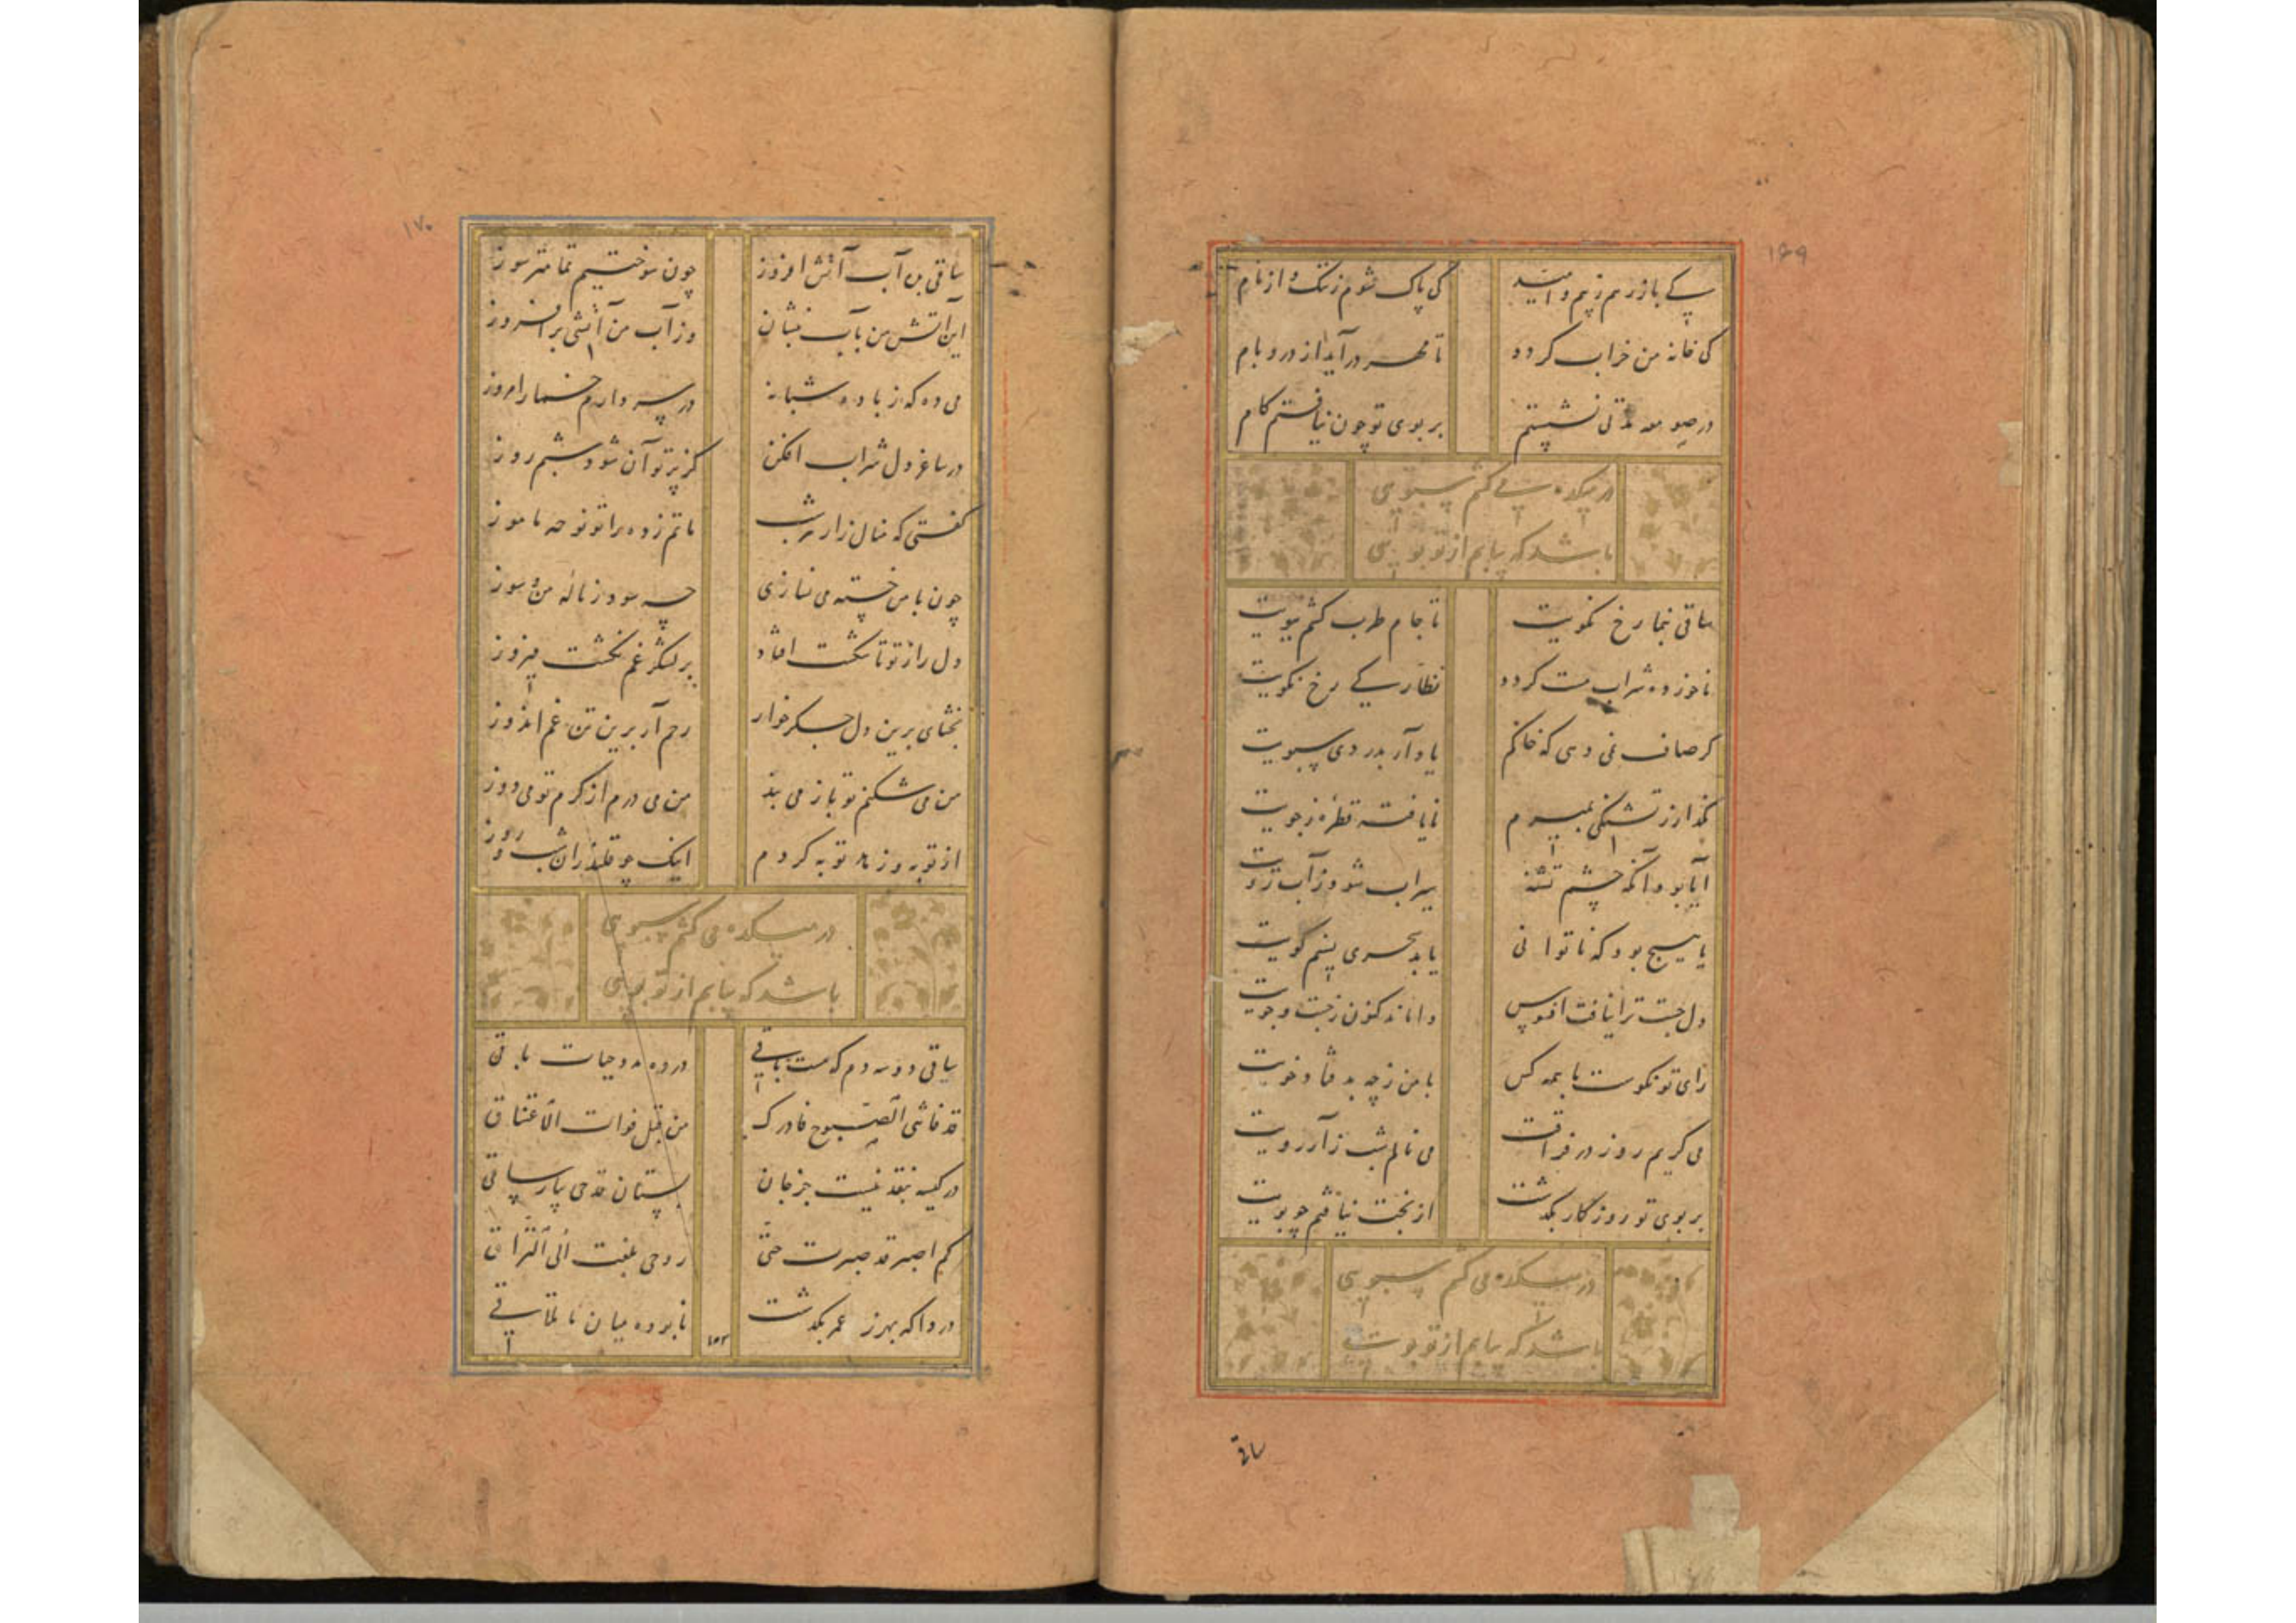 ۱۶۹
کی باز رهم ز بیم و امید کی پاک شوم ز ننگ و از نام
کی خانه من خراب گردد تا مهر درآید از در و بام
در صومعه مدتی نشستم بر بوی تو چون نیافتم کام
در میکده می کشم سبویی
باشد که بیابم از تو بویی
ساقی بنما رخ نکویت تا جام طرب کشم ببویت
ناخورده شراب مست گردد نظارگی رخ نکویت
گر صاف نمی دهی که خاکم یاد آر بدردی سبویت
مگذار ز تشنگی بمیرم نایافته قطرهٔ ز جویت
آیا بود آنکه چشم تشنه سیراب شود ز آب رویت
یا هیچ بود که ناتوانی یابد سحری نسیم کویت
دل جست ترا نیافت افسوس واماند کنون ز جست و جویت
رای تو نکوست با همه کس با من ز چه بد فتاد خویت
می گریم روز در فراقت می نالم شب ز آرزویت
بر بوی تو روزگار بگذشت از بخت نیافتم چو بویت
در میکده می کشم سبویی
باشد که بیابم از تو بویی
ساقی
۱۷۰
ساقی بده آب آتش افروز چون سوختیم تمامتر سوز
این آتش من بآب بنشان وز آب من آتشی برافروز
می ده که ز باده شبانه در سر دارم خمار امروز
در ساغر دل شراب افکن کز پرتو آن شود شبم روز
گفتی که بنال زار هر شب ماتم زده را تو نوحه ماموز
چون با من خسته می نسازی چه سود ز ناله من و سوز
دل را ز تو تا شکست افتاد بر لشکر غم نگشت پیروز
بخشای برین دل جگر خوار رحم آر برین تن غم اندوز
من می شکنم تو باز می بند من می درم از کرم تو می دوز
از توبه و زهد توبه کردم اینک چو قلندران شب و روز
در میکده می کشم سبویی
باشد که بیابم از تو بویی
ساقی دو سه دم که هست باقی در ده مدد حیات باقی
قد فاتنی الصبوح فادرک من قبل فوات الاغتباق
در کیسه نقد نیست جز جان بستان قدحی بیار ساقی
کم اصبر قد صبرت حتی روحی بلغت الی التراق
دردا که بهرزه عمر بگذشت نابوده میان ما تلاقی